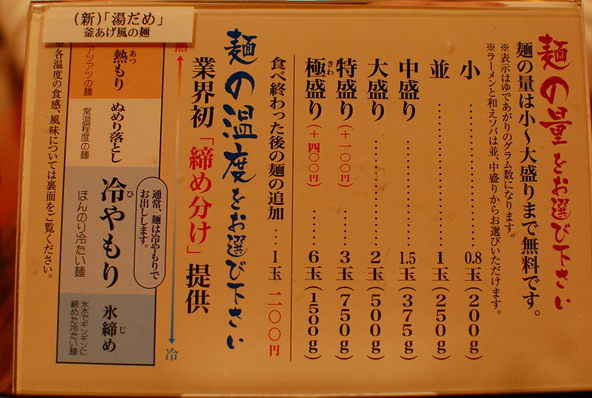 麺の量をお選び下さい
麺の量は小〜大盛りまで無料です。
※表示はゆであがりのグラム数になります。
※ラーメンと和えソバは並、中盛りからお選びいただけます。
小…………………0.8玉(200g)
並…………………1玉(250g)
中盛り……………1.5玉(375g)
大盛り……………2玉(500g)
特盛り(+一〇〇円)……3玉(750g)
極盛り(+四〇〇円)……6玉(1500g)
きわ
食べ終わった後の麺の追加…1玉二〇〇円
麺の温度をお選び下さい
業界初「締め分け」提供
(新)「湯だめ」
釜あげ風の麺
熱
冷
熱もり
あつ
アツアツの麺
ぬめり落とし
常温程度の麺
冷やもり
ひ
ほんのり冷たい麺
通常、麺は冷やもりで
お出しします。
氷締め
じ
氷水でギンギンに
締めた冷たい麺
各温度の食感、風味については裏面をご覧ください。